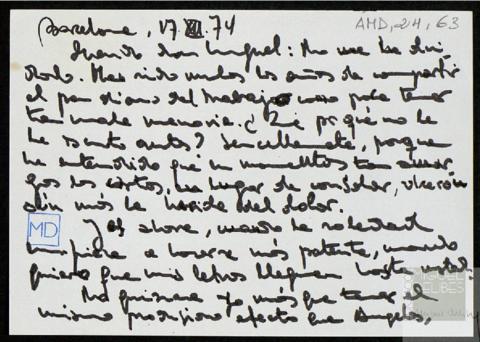 Barcelona, 17.XII.74
AMD, 24, 63
Querido don Miguel: No me he olvi-
dado. Han sido muchos los años de compartir
el pan diario del trabajo como para tener
tan mala memoria. ¿Que por qué no le
he escrito antes? Sencillamente, porque
he entendido que en momentos tan amar-
gos las cartas, en lugar de consolar, 
aún más la herida del dolor.
MD
Y es ahora, cuando la soledad
empieza a hacerse más patente, cuando
quiero que mis letras lleguen hasta usted.
No quisiera yo más que tener el
mismo prodigioso efecto que Angeles,
MIGUEL
DELIBES